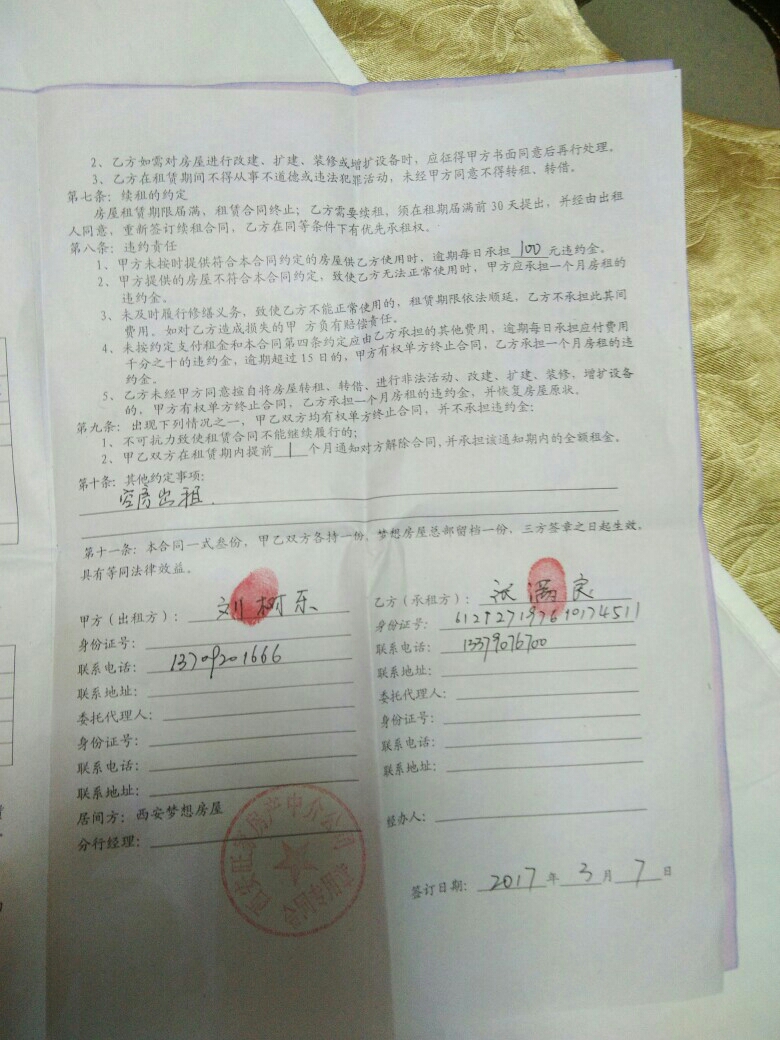 2、乙方如需对房屋进行改建、扩建、装修或增扩设备时，应征得甲方书面同意后再行处理。
3、乙方在租赁期间不得从事不道德或违法犯罪活动，未经甲方同意不得转租、转借。
第七条：续租的约定
房屋租赁期限届满，租赁合同终止；乙方需要续租，须在租期届满前30天提出，并经由出租
人同意，重新签订续租合同，乙方在同等条件下有优先承租权。
第八条：违约责任
1、甲方未按时提供符合本合同约定的房屋供乙方使用时，逾期每日承担 100 元违约金。
2、甲方提供的房屋不符合本合同约定，致使乙方无法正常使用时，甲方应承担一个月房租的
违约金。
3、未及时履行修缮义务，致使乙方不能正常使用的，租赁期限依法顺延，乙方不承担此其间
费用。如对乙方造成损失的甲 方负有赔偿责任。
4、未按约定支付租金和本合同第四条约定应由乙方承担的其他费用，逾期每日承担应付费用
千分之十的违约金，逾期超过15日的，甲方有权单方终止合同，乙方承担一个月房租的违
约金。
5、乙方未经甲方同意擅自将房屋转租、转借、进行非法活动、改建、扩建、装修、增扩设备
的，甲方有权单方终止合同，乙方承担一个月房租的违约金，并恢复房屋原状。
第九条：出现下列情况之一，甲乙双方均有权单方终止合同，并不承担违约金：
1、不可抗力致使租赁合同不能继续履行的；
2、甲乙双方在租赁期内提前 1 个月通知对方解除合同，并承担该通知期内的全额租金。
第十条：其他约定事项：
空房出租.
第十一条：本合同一式叁份，甲乙双方各持一份，梦想房屋总部留档一份，三方签章之日起生效。
具有等同法律效益。
甲方（出租方）：刘树乐
身份证号：
联系电话：13709201666
联系地址：
委托代理人：
身份证号：
联系电话：
联系地址：
居间方：西安梦想房屋
分行经理：
乙方（承租方）：张满良
身份证号：612727197610174511
联系电话：13379076700
联系地址：
委托代理人：
身份证号：
联系电话：
联系地址：
经办人：
签订日期：2017年3月7日